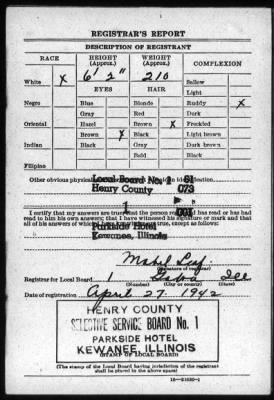 REGISTRAR'S REPORT
DESCRIPTION OF REGISTRANT
RACE HEIGHT (Approx.) WEIGHT (Approx.) COMPLEXION
White X 6' 2" 210 Sallow
EYES HAIR Light
Negro Blue Blonde Ruddy X
Gray Red Dark
Oriental Hazel Brown X Freckled
Brown X Black Light brown
Indian Black Gray Dark brown
Bald Black
Filipino
Other obvious physical
Local Board No. 1 61
Henry County 073
1 001
I certify that my answers are true; that the person registered has read or has had
read to him his own answers; that I have witnessed his signature or mark and that
all of his answers of which I have knowledge are true, except as follows:
Parkside Hotel
Kewanee, Illinois
Mabel
(Signature of registrar)
Registrar for Local Board 1 Ill
(Number) (City or county) (State)
Date of registration April 27, 1942
HENRY COUNTY
SELECTIVE SERVICE BOARD No. 1
PARKSIDE HOTEL
KEWANEE, ILLINOIS
(STAMP OF LOCAL BOARD)
(The stamp of the Local Board having jurisdiction of the registrant
shall be placed in the above space)